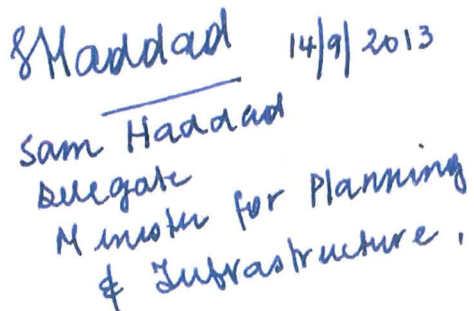 SHaddad 14/9/2013
Sam Haddad
Delegate
Minister for Planning
& Infrastructure.